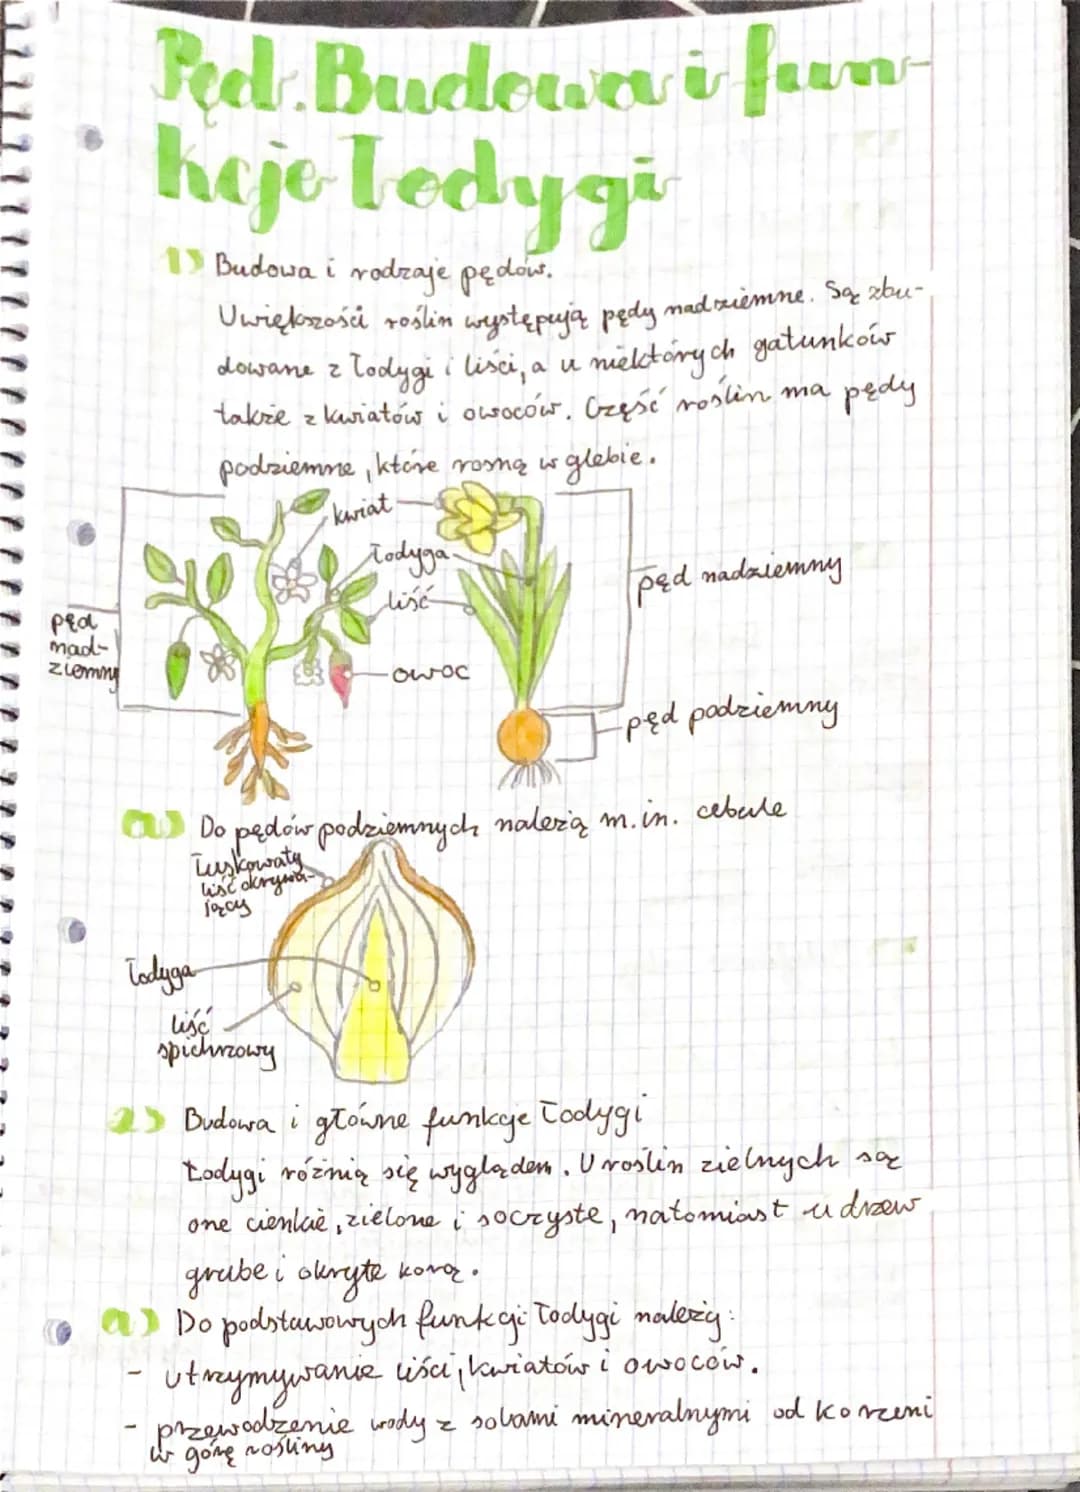 Pęd. Budowa i fun-
kcje łodygi
1) Budowa i rodzaje pędów.
U większości roślin występują pędy nadziemne. Są zbu-
dowane z łodygi i liści, a u niektórych gatunków
także z kwiatów i owoców. Część roślin ma pędy
podziemne, które rosną w glebie.
kwiat
łodyga
liść
owoc
pęd
nad-
ziemny
pęd nadziemny
pęd podziemny
a) Do pędów podziemnych należą m.in. cebule
Łuskowaty
liść okrywa-
jący
łodyga
liść
spichrzowy
2) Budowa i główne funkcje łodygi
Łodygi różnią się wyglądem. U roślin zielnych są
one cienkie, zielone i soczyste, natomiast u drzew
grube i okryte korą.
a) Do podstawowych funkcji łodygi należy:
- utrzymywanie liści, kwiatów i owoców.
- przewodzenie wody z solami mineralnymi od korzeni
w górę rośliny